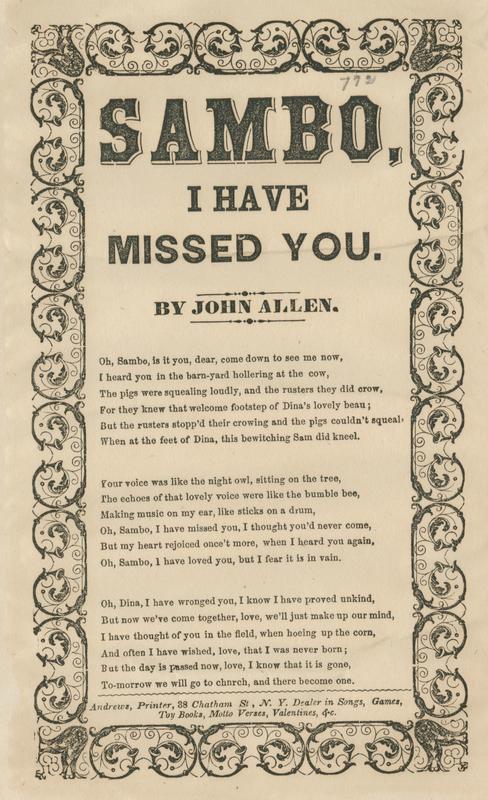 772
SAMBO,
I HAVE
MISSED YOU.
BY JOHN ALLEN.
Oh, Sambo, is it you, dear, come down to see me now,
I heard you in the barn-yard hollering at the cow,
The pigs were squealing loudly, and the rusters they did crow,
For they knew that welcome footstep of Dina's lovely beau;
But the rusters stopp'd their crowing and the pigs couldn't squeal,
When at the feet of Dina, this bewitching Sam did kneel.
Your voice was like the night owl, sitting on the tree,
The echoes of that lovely voice were like the bumble bee,
Making music on my ear, like sticks on a drum,
Oh, Sambo, I have missed you, I thought you'd never come,
But my heart rejoiced once't more, when I heard you again,
Oh, Sambo, I have loved you, but I fear it is in vain.
Oh, Dina, I have wronged you, I know I have proved unkind,
But now we've come together, love, we'll just make up our mind,
I have thought of you in the field, when hoeing up the corn,
And often I have wished, love, that I was never born;
But the day is passed now, love, I know that it is gone,
To-morrow we will go to chnrch, and there become one.
Andrews, Printer, 38 Chatham St, N. Y. Dealer in Songs, Games,
Toy Books, Motto Verses, Valentines, &c.